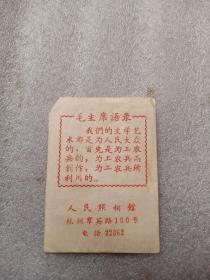 毛主席语录
我們的文学艺
术都是为人民大众
的，首先是为工农
兵的，为工农兵而
創作，为工农兵所
利用的。
人民照相館
杭州翠苑路100号
电話22862